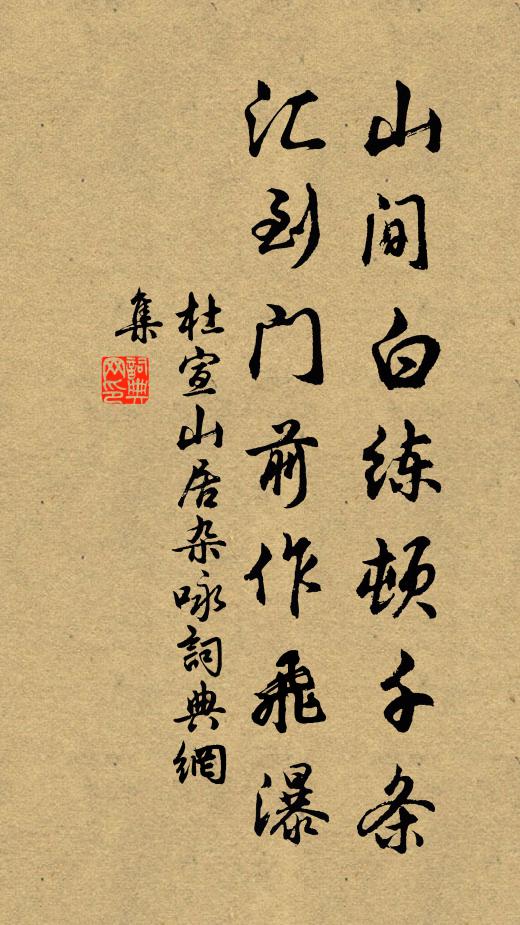 山间白练顿千条
汇到门前作飞瀑
杜宣山居杂咏詞典網
集
詞典网印